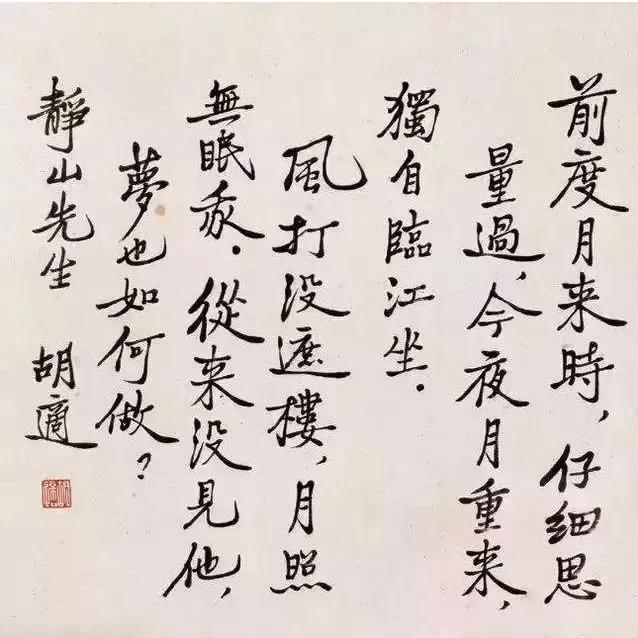 前度月来時，仔细思
量過，今夜月重来，
獨自臨江坐．
風打没遮樓，月照
無眠我．從来没見他，
夢也如何做？
靜山先生　胡適